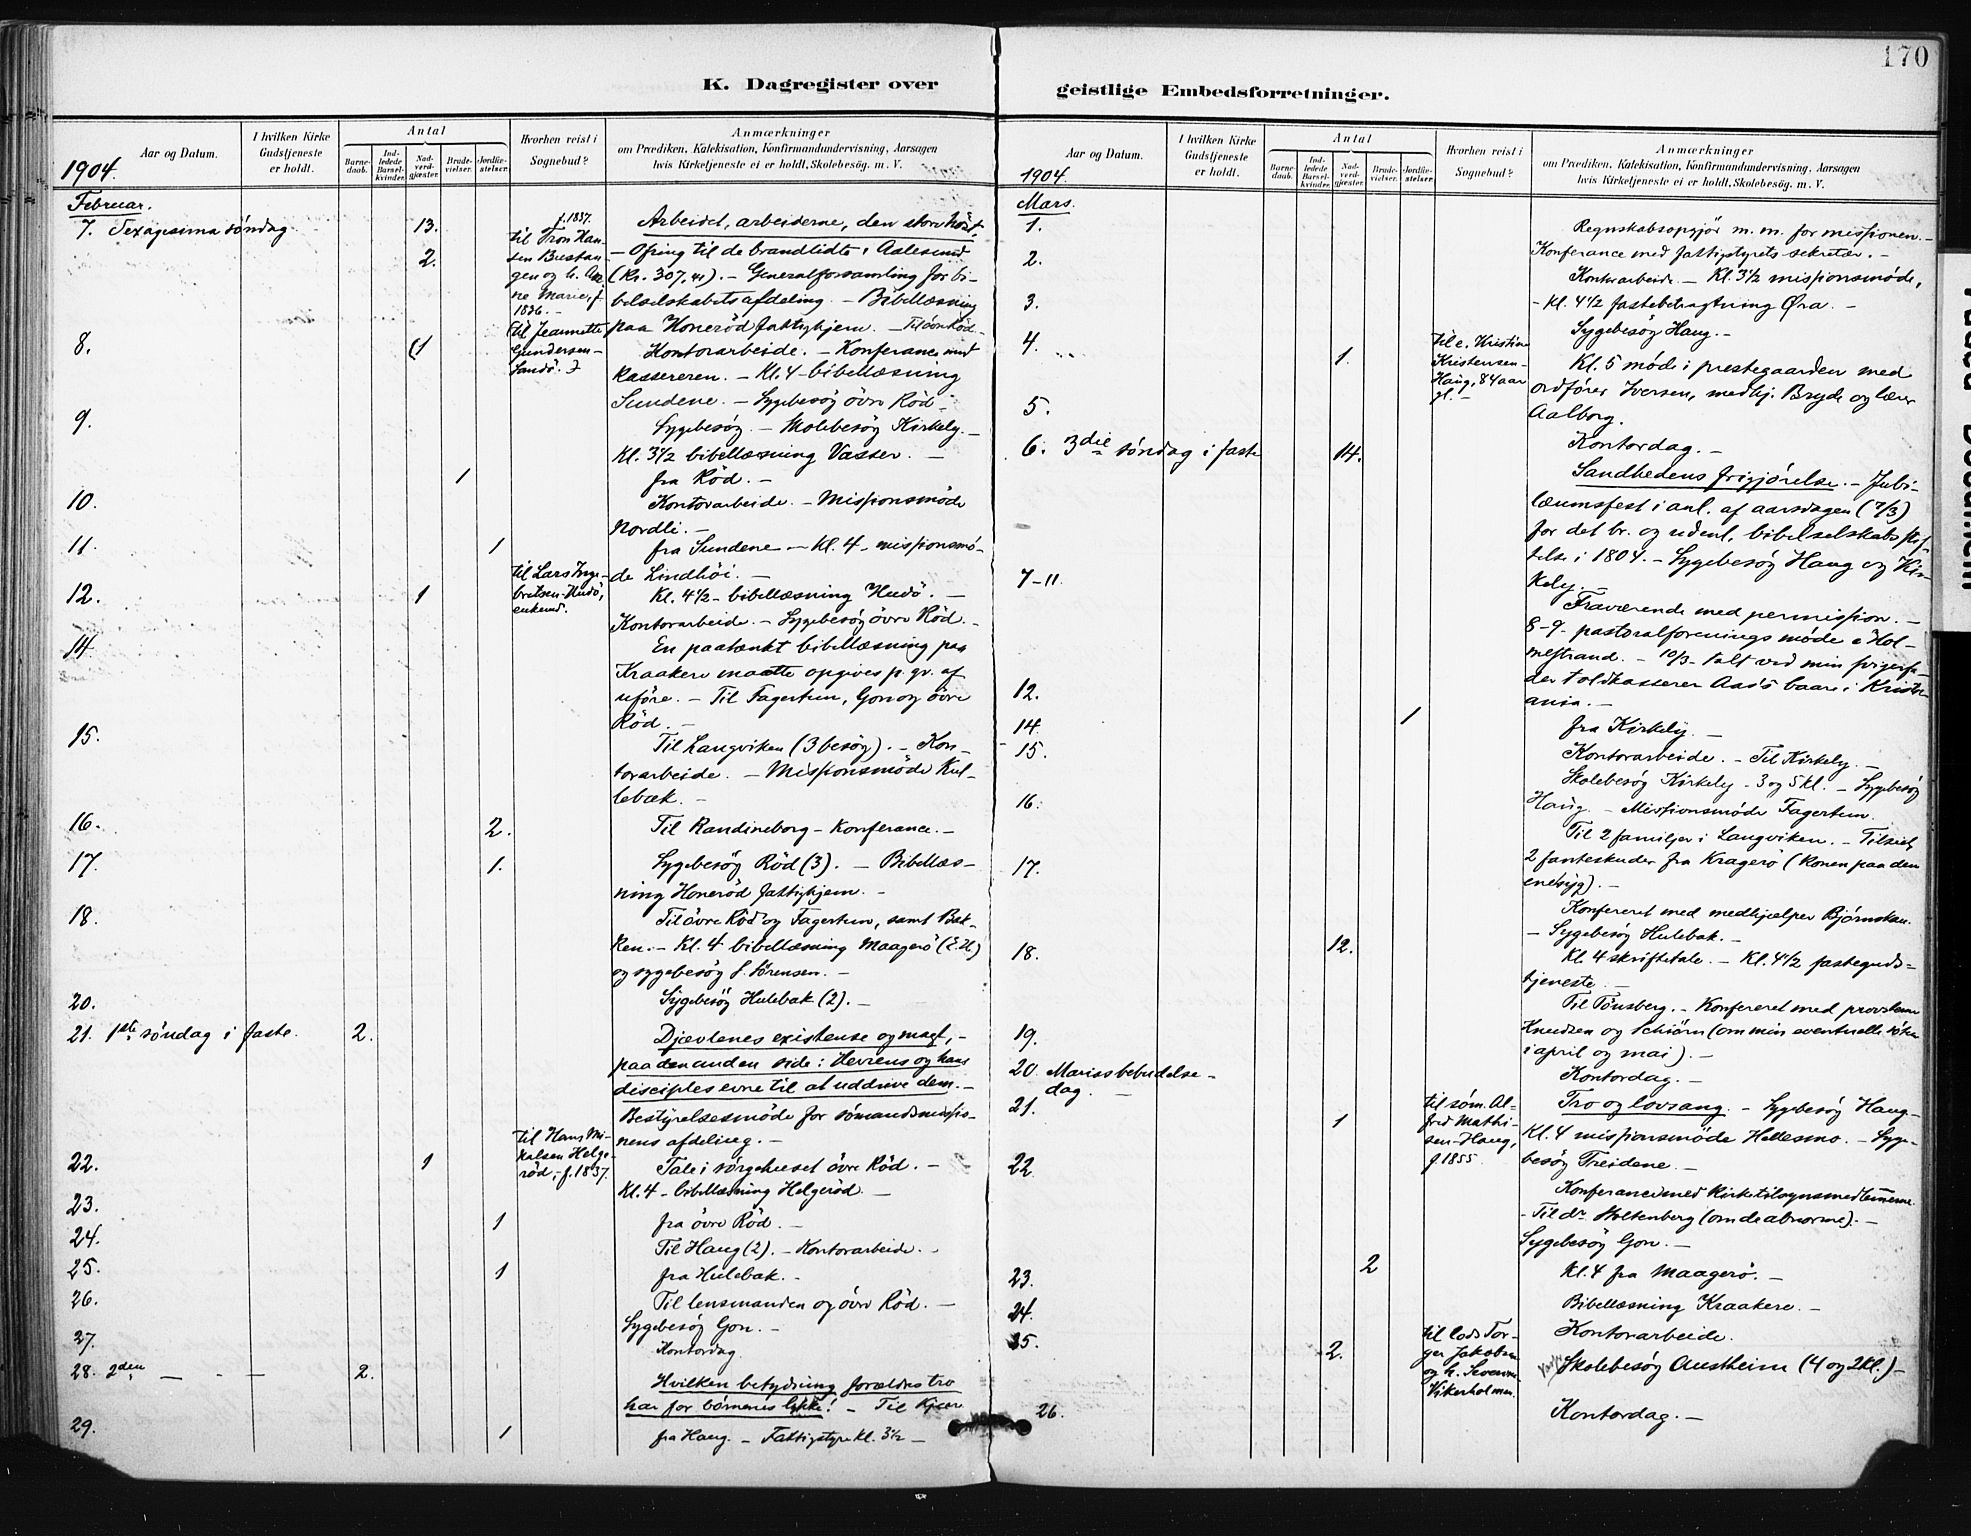 170
K. Dagregister over
Aar og Datum.
I hvilken Kirke
Gudstjeneste
er holdt.
Antal
Barne-
daab.
Ind-
ledede
Barsel-
kvinder.
Nad-
verd-
gjæster.
Brude-
vielser.
Jordfæ-
stelser.
Hvorhen reist i
Sognebud?
Anmærkninger
om Prædiken, Katekisation, Konfirmandundervisning, Aarsagen
hvis Kirketjeneste ei er holdt, Skolebesøg. m. V.
1904.
Februar.
7. Sexagesima søndag
13.
2.
f. 1837.
til Tron Han-
sen Bustan-
gen og h.
ne Marie, f.
1836. -
Arbeidet, arbeiderne, den store høst.
- Ofring til de brandlidte i Aalesund
(Kr. 307,41). - Generalforsamling for bi-
belselskabets afdeling. - Bibellæsning
paa Honerød fattighjem. -
8.
(1
til Jeannette
Gundersen-
Sandø.
Kontorarbeide. - Konferance med
kassereren. - Kl. 4 - bibellæsning
Sundene. - Sygebesøg øvre Rød.
9.
Sygebesøg. - Skolebesøg Kirkely. -
Kl. 3½ bibellæsning Vasser. -
1
fra Rød. -
10.
Kontorarbeide. - Missionsmøde
Nordli. -
11.
1
fra Sundene - Kl. 4 - missionsmø-
de Lindhöi. -
12.
1
til Lars Inge-
bretsen Hudø,
enkemd.
Kl. 4½ - bibellæsning Hudø. -
Kontorarbeide. - Sygebesøg øvre Rød. -
14.
En paatænkt bibellæsning paa
Kraakere maatte opgives p. gr. af
uføre. - Til Fagertun, Gon og øvre
Rød. -
15.
Til Langviken (3 besøg). - Kon-
torarbeide. - Missionsmøde Hul-
lebæk. -
16.
2.
Til Randineborg - Konferance. -
17.
1.
Sygebesøg Rød (3). - Bibellæs-
ning Honerød fattighjem. -
18.
Til øvre Rød og Fagertun, samt Bak-
ken. - Kl. 4 bibellæsning Maagerø
og sygebesøg S. Sørensen. -
20.
Sygebesøg Hulebak (2). -
21. 1ste søndag i faste.
2.
Djævlenes existense og magt, -
paa den anden side: Herrens og hans
disciples evne til at uddrive dem. -
Bestyrelsesmøde for sømandsmissio-
nens afdeling. -
22.
1
til Hans Mi-
kalsen Helge-
rød, - f. 1837.
Tale i sørgehuset øvre Rød. -
Kl. 4 - bibellæsning Helgerød. -
23.
1
fra øvre Rød. -
24.
Til Haug (2). - Kontorarbeide. -
25.
1
fra Hulebak. -
26.
Til lensmanden og øvre Rød. -
Sygebesøg Gon. -
27.
Kontordag.
28. 2den - - -
2.
Hvilken betydning forældres tro
har for børnenes lykke! - Til Kjær
29.
1
fra Haug. - Fattigstyre kl. 3½ -
geistlige Embedsforretninger.
Aar og Datum.
I hvilken Kirke
Gudstjeneste
er holdt.
Antal
Barne-
daab.
Ind-
ledede
Barsel-
kvinder.
Nad-
verd-
gjæster.
Brude-
vielser.
Jordfæ-
stelser.
Hvorhen reist i
Sognebud?
Anmærkninger
om Prædiken, Katekisation, Konfirmandundervisning, Aarsagen
hvis Kirketjeneste ei er holdt, Skolebesøg. m. V.
1904.
Mars.
1.
Regnskabsopgjør m. m. for missionen. -
Konferance med fattigstyrets sekretær. -
2.
Kontorarbeide. - Kl. 3½ missionsmøde,
3.
- kl. 4½ fastebetragtning Øra. -
Sygebesøg Haug. -
4.
1.
til e. Kristine
Kristensen-
Haug, 84 aar
gl. -
Kl. 5 møde i prestegaarden med
ordfører Iversen, medhj. Bryde og lærer
Aalborg.
5.
Kontordag. -
6. 3die søndag i faste
14.
Sandhedens frigjørelse. - Jubi-
læumsfest i anl. af aarsdagen (7/3)
for det br. og udenl. bibelselskabs stif-
telse i 1804. - Sygebesøg Haug og Kir-
kely. -
7-11.
Fraværende med permission. -
8-9. pastoralforeningsmøde i Hol-
mestrand. - 10/3 - talt ved min svigerfa-
der toldkasserer Aas's baare i Kristi-
ania. -
12.
1
fra Kirkely. -
14.
Kontorarbeide. - Til Kirkely. -
15.
Skolebesøg Kirkely - 3 og 5 kl. - Sygebesøg
Haug. - Missionsmøde Fagertun.
16.
Til 2 familjer i Langviken. - Tilseet
2 fanteskuder fra Kragerø (Konen paa den
ene syg). -
17.
Konfereret med medhjælper Bjørnskau.
- Sygebesøg Hulebak. -
18.
12.
Kl. 4 skriftetale. - Kl. 4½ fasteguds-
tjeneste. -
Til Tønsberg. - Konfereret med provsterne
Knudsen og Schiørn (om min eventuelle
i april og mai). -
19.
Kontordag. -
20. Mariæ bebudelses-
dag. -
Tro og lovsang. - Sygebesøg Haug -
21.
1
til søm. Al-
fred Mathi-
sen-Haug,
f. 1855.
Kl. 4 missionsmøde Hellesmo. - Syge-
besøg Treidene. -
22.
Konferance med kirketilsynsmedlemmerne.
- Til dr. Holtenberg (om de abnorme). -
Sygebesøg Gon. -
23.
2
Kl. 4 fra Maagerø. -
24.
Bibellæsning Kraakere. -
25.
2.
til lods Tor-
ger Jakobsen
og h. Severine
Vikerholmen.
Kontorarbeide.
Skolebesøg Austheim (4 og 2 kl.) -
26.
Kontordag. -